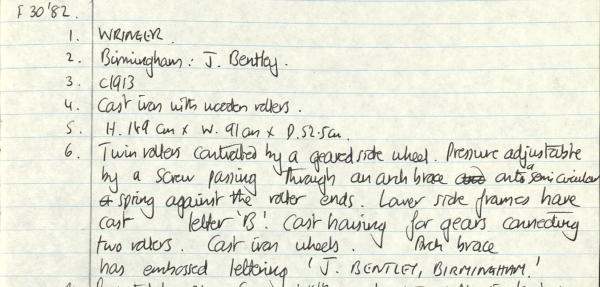 F 30'82.
1. WRINGER.
2. Birmingham: J. Bentley.
3. c1913
4. Cast iron with wooden rollers.
5. H. 149 cm x W. 91 cm x D. 52.5 cm.
6. Twin rollers controlled by a geared side wheel. Pressure adjustable
by a screw passing through an arch brace onto a semi circular
spring against the roller ends. Lower side frames have
cast letter 'B'. Cast housing for gears connecting
two rollers. Cast iron wheels. Arch brace
has embossed lettering 'J. BENTLEY, BIRMINGHAM.'